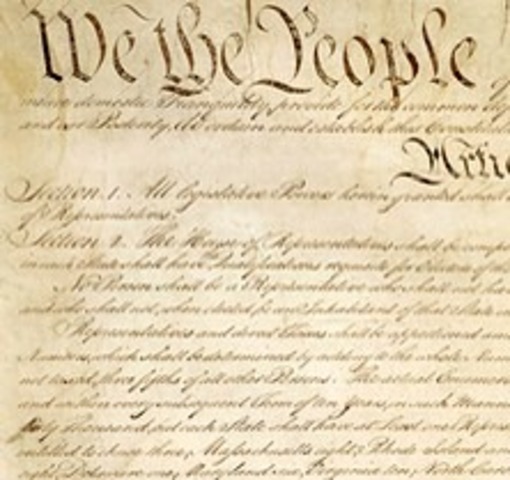 We the People of
insure domestic Tranquility, provide for the common
and our Posterity, do ordain and establish this Constitut
Artic
Section. 1. All legislative Powers herein granted shall
of Representatives.
Section. 2. The House of Representatives shall be compos
in each State shall have Qualifications requisite for Electors of the
No Person shall be a Representative who shall not have
and who shall not, when elected, be an Inhabitant of that State
Representatives and direct Taxes shall be apportioned
Numbers, which shall be determined by adding to the whole Num
not taxed, three fifths of all other Persons. The actual Enumera
and within every subsequent Term of ten Years, in such Manner
thirty Thousand, but each State shall have at Least one Represe
entitled to chuse three, Massachusetts eight, Rhode Island and
eight, Delaware one, Maryland six, Virginia ten, North Caro